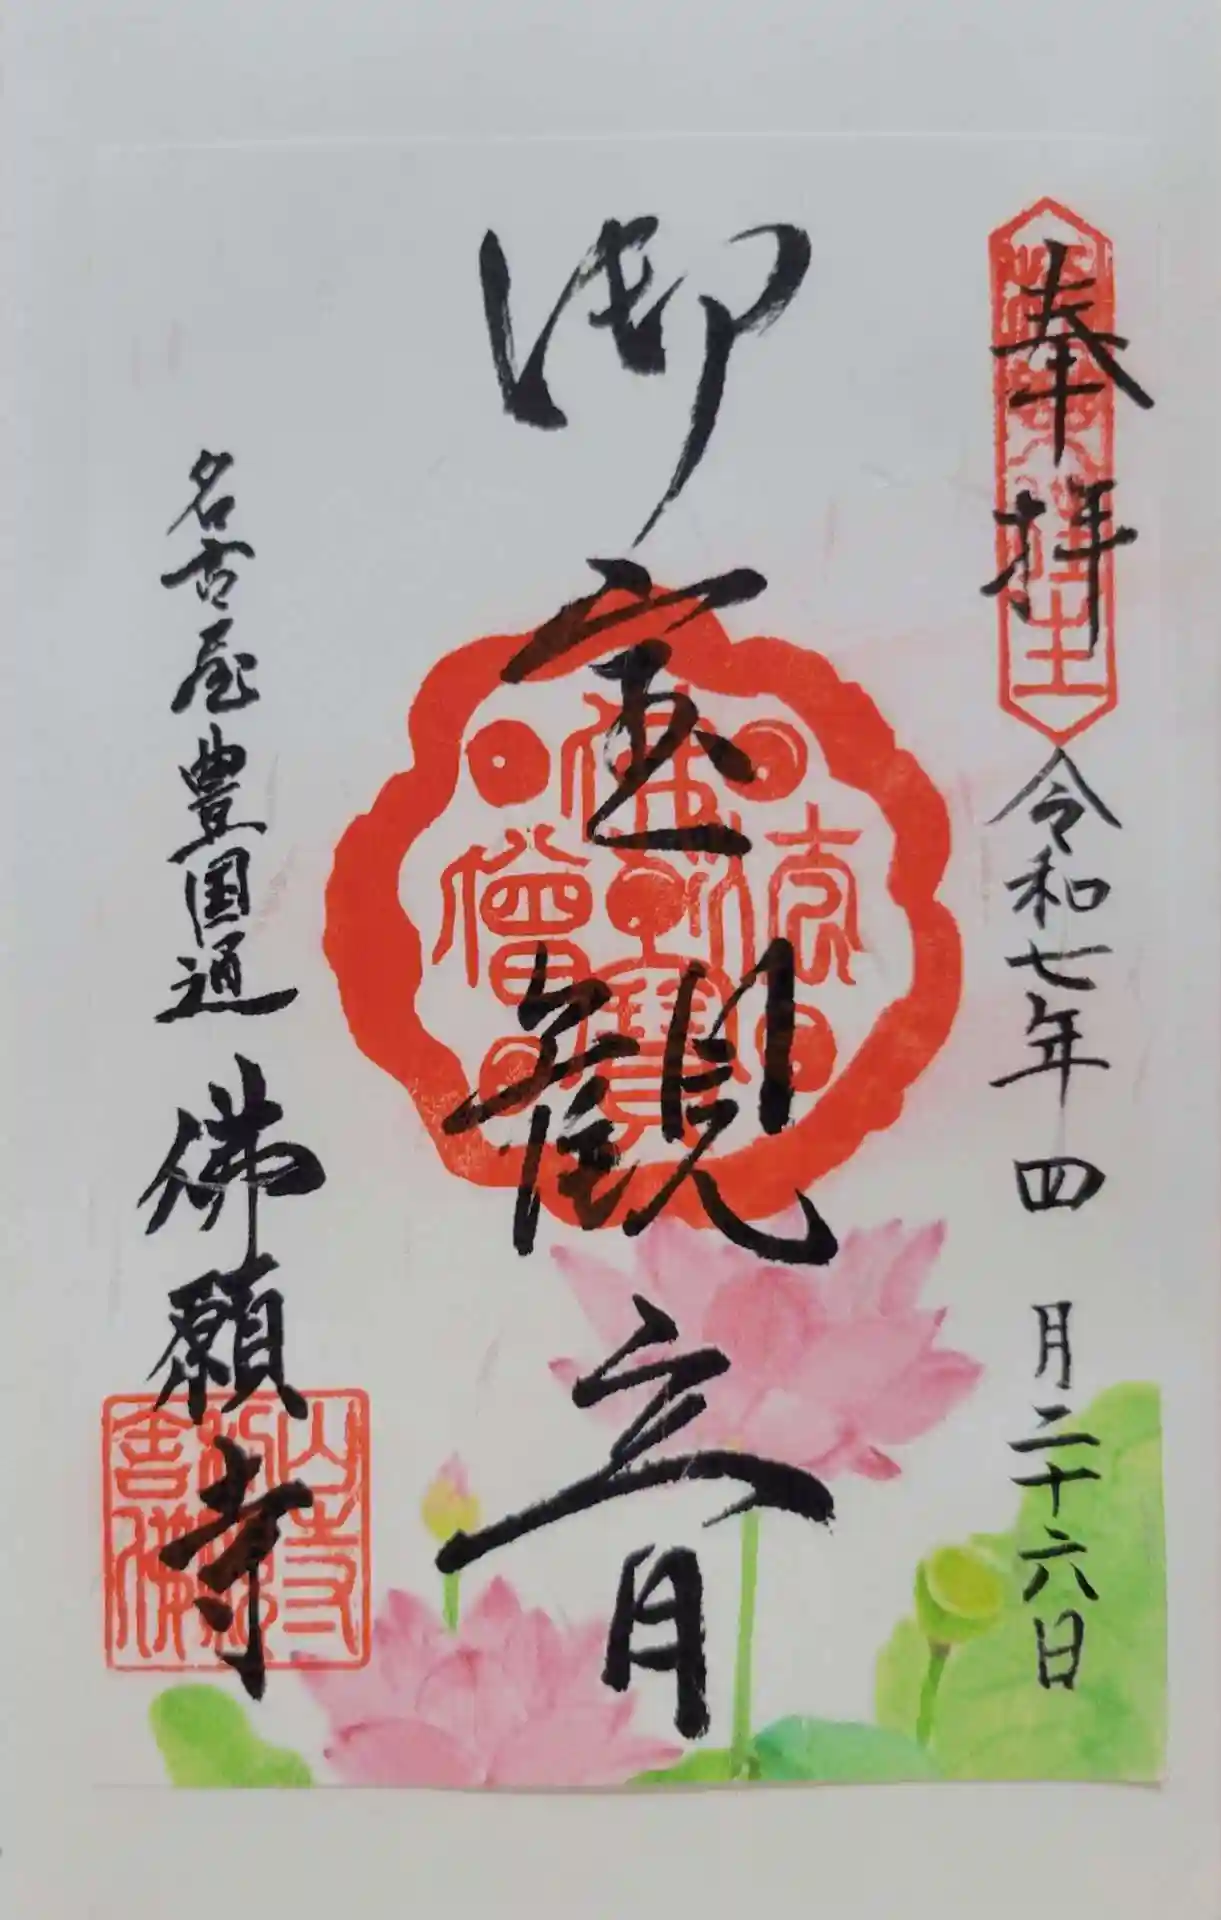 奉拝
令和七年四月二十六日
御宝観音
佛法僧寶
名古屋豊国通
佛願寺